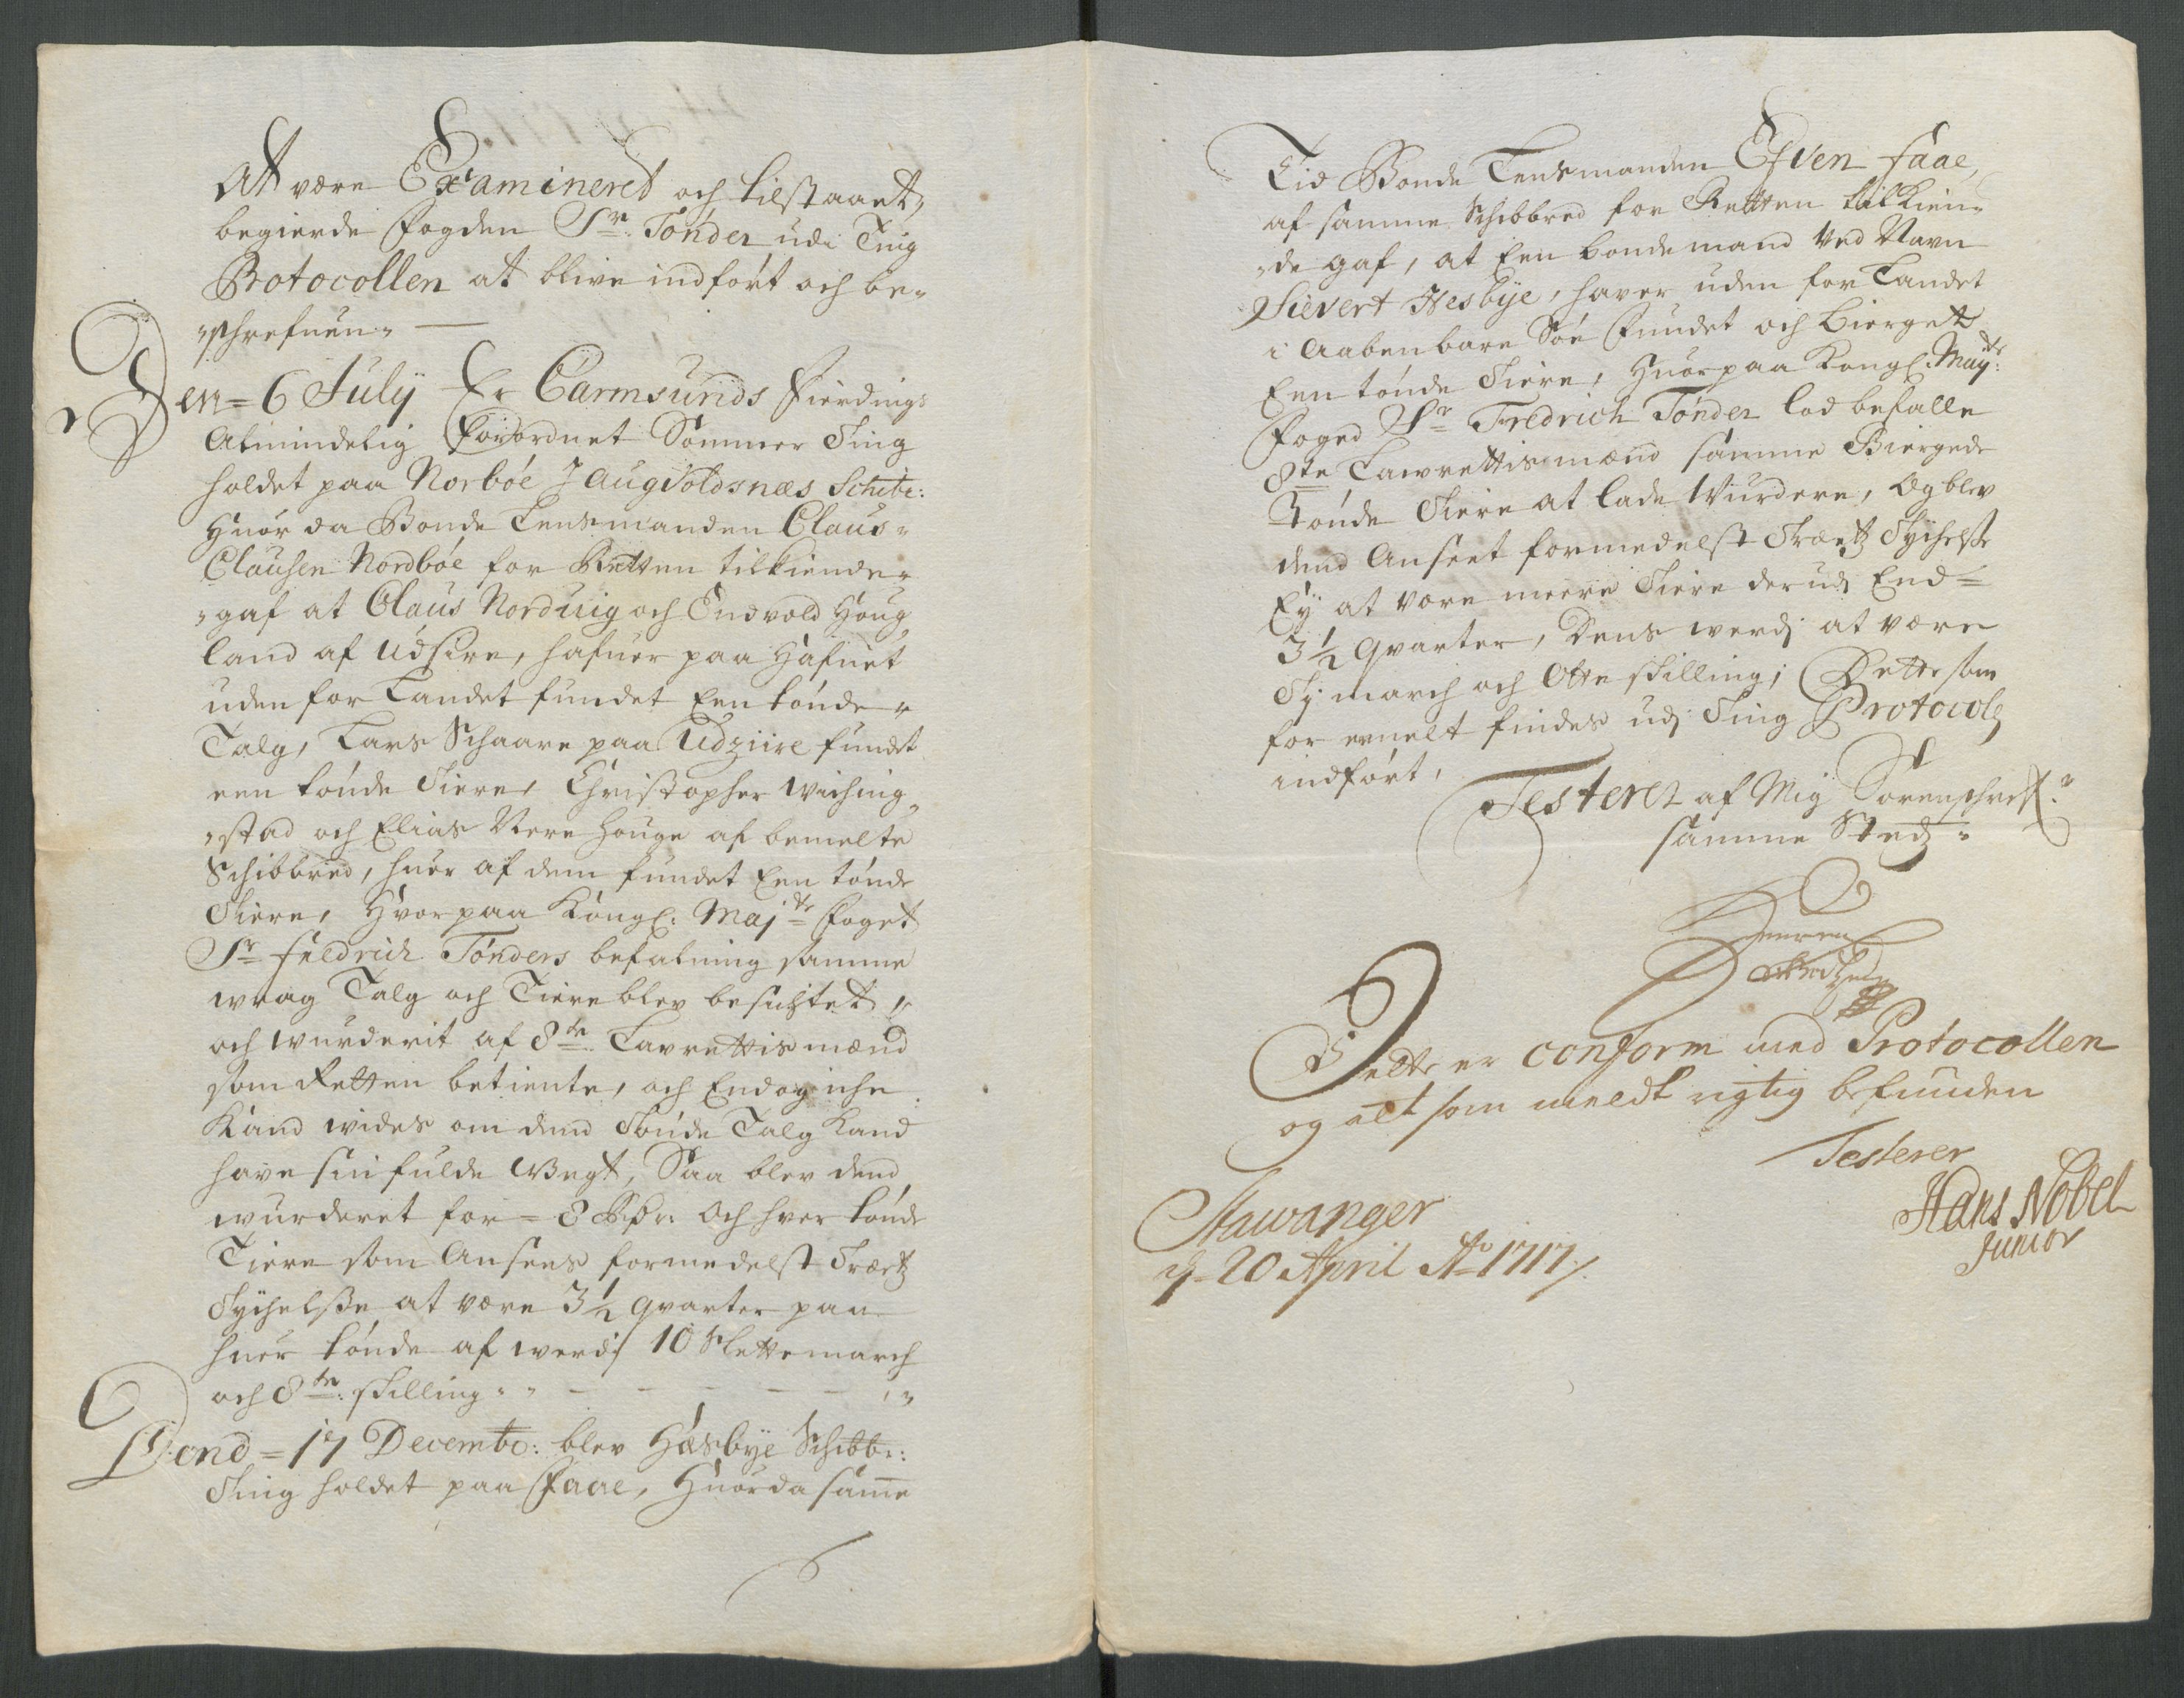 At være Examineret och tilstaaet,
begierde fogden Sr. Tønder udi Ting
Protocollen at blive indført och be-
„schrefuen„
Den= 6 July Er Carmsunds fierdings
Almindelig forordnet Sommer Ting
holdet paa Norbøe J Augvoldsnæs Schibr:
Huor da Bonde Lensmanden Claus-
Clausen Nordbøe for Retten tilkiende-
„gaf at Olaus Norduig och Endvold Houg
land af Udsire, hafuer paa Hafuet
uden for Landet fundet Een tønde-
Talg, Lars Schaare paa Udziire fundet
een tønde Tiere, Christopher Wiching
„stad och Elias Nere Houge af bemelte
Schibbred, huer af dem fundet Een tønde
Tiere, Hvorpaa Kongl: Majts foget
Sr fredrich Tønders befalning samme
wrag Talg och Tiere blev besichtet,
och wurderit af 8te Lavrettismænd
som Retten betiente, och Endog iche
Kand wides om dend Tønde Talg kand
have sin fulde Wegt, Saa blev dend
wurderet for= 8 Bspr: Och hver tønde
Tiere som Ansees formedelst Træetz
Tychelsse at være 3½ qvarter paa
huer tønde af werdj 10 Slette march
och 8te: skilling - -
Dend= 17 Decembr: blev Hæsbye Schibbr:
Ting holdet paa Faae, Huorda same
Tid Bonde Lensmanden Efven faae,
af samme Schibbred for Retten tilkien-
„de gaf, at Een bonde mand Ved Navn
Sievert Hesbye, haver uden for Landet
i Aabenbare Søe fundet och bierget
Een tønde Tiere, Huorpaa Kongl. Mayts:
foged Sr Fredrich Tønder lod befalle
8te Lawrettismænd samme Biergede
Tønde Tiere at lade Wurdere, Og blev
dend Anseet formedelst Træetz Tychelsse
Ey at være meere Tiere derudj End=
3½ qvarter, Dens werdj at være
Ty march och Otte skilling; Dette som
forermelt findes udj Ting Protocolz
indført,
Testerer af Mig Sorenschrefr:
samme Sted„
Dette er conform med Protocollen
og alt som meldt rigtig befunden
Testerer
Hans Nobel
Junior
Stawanger
d. 20 April Ao 1717.